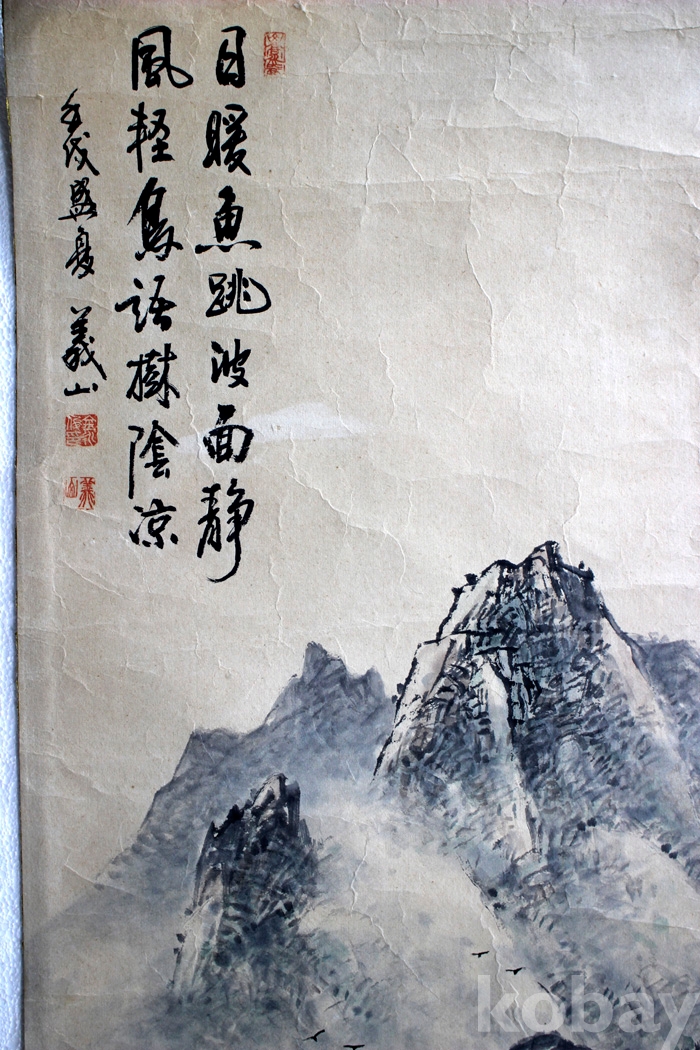 日暖魚跳波面静
風軽鳥語樹陰凉
壬戌盛夏 義山
義山
kobay